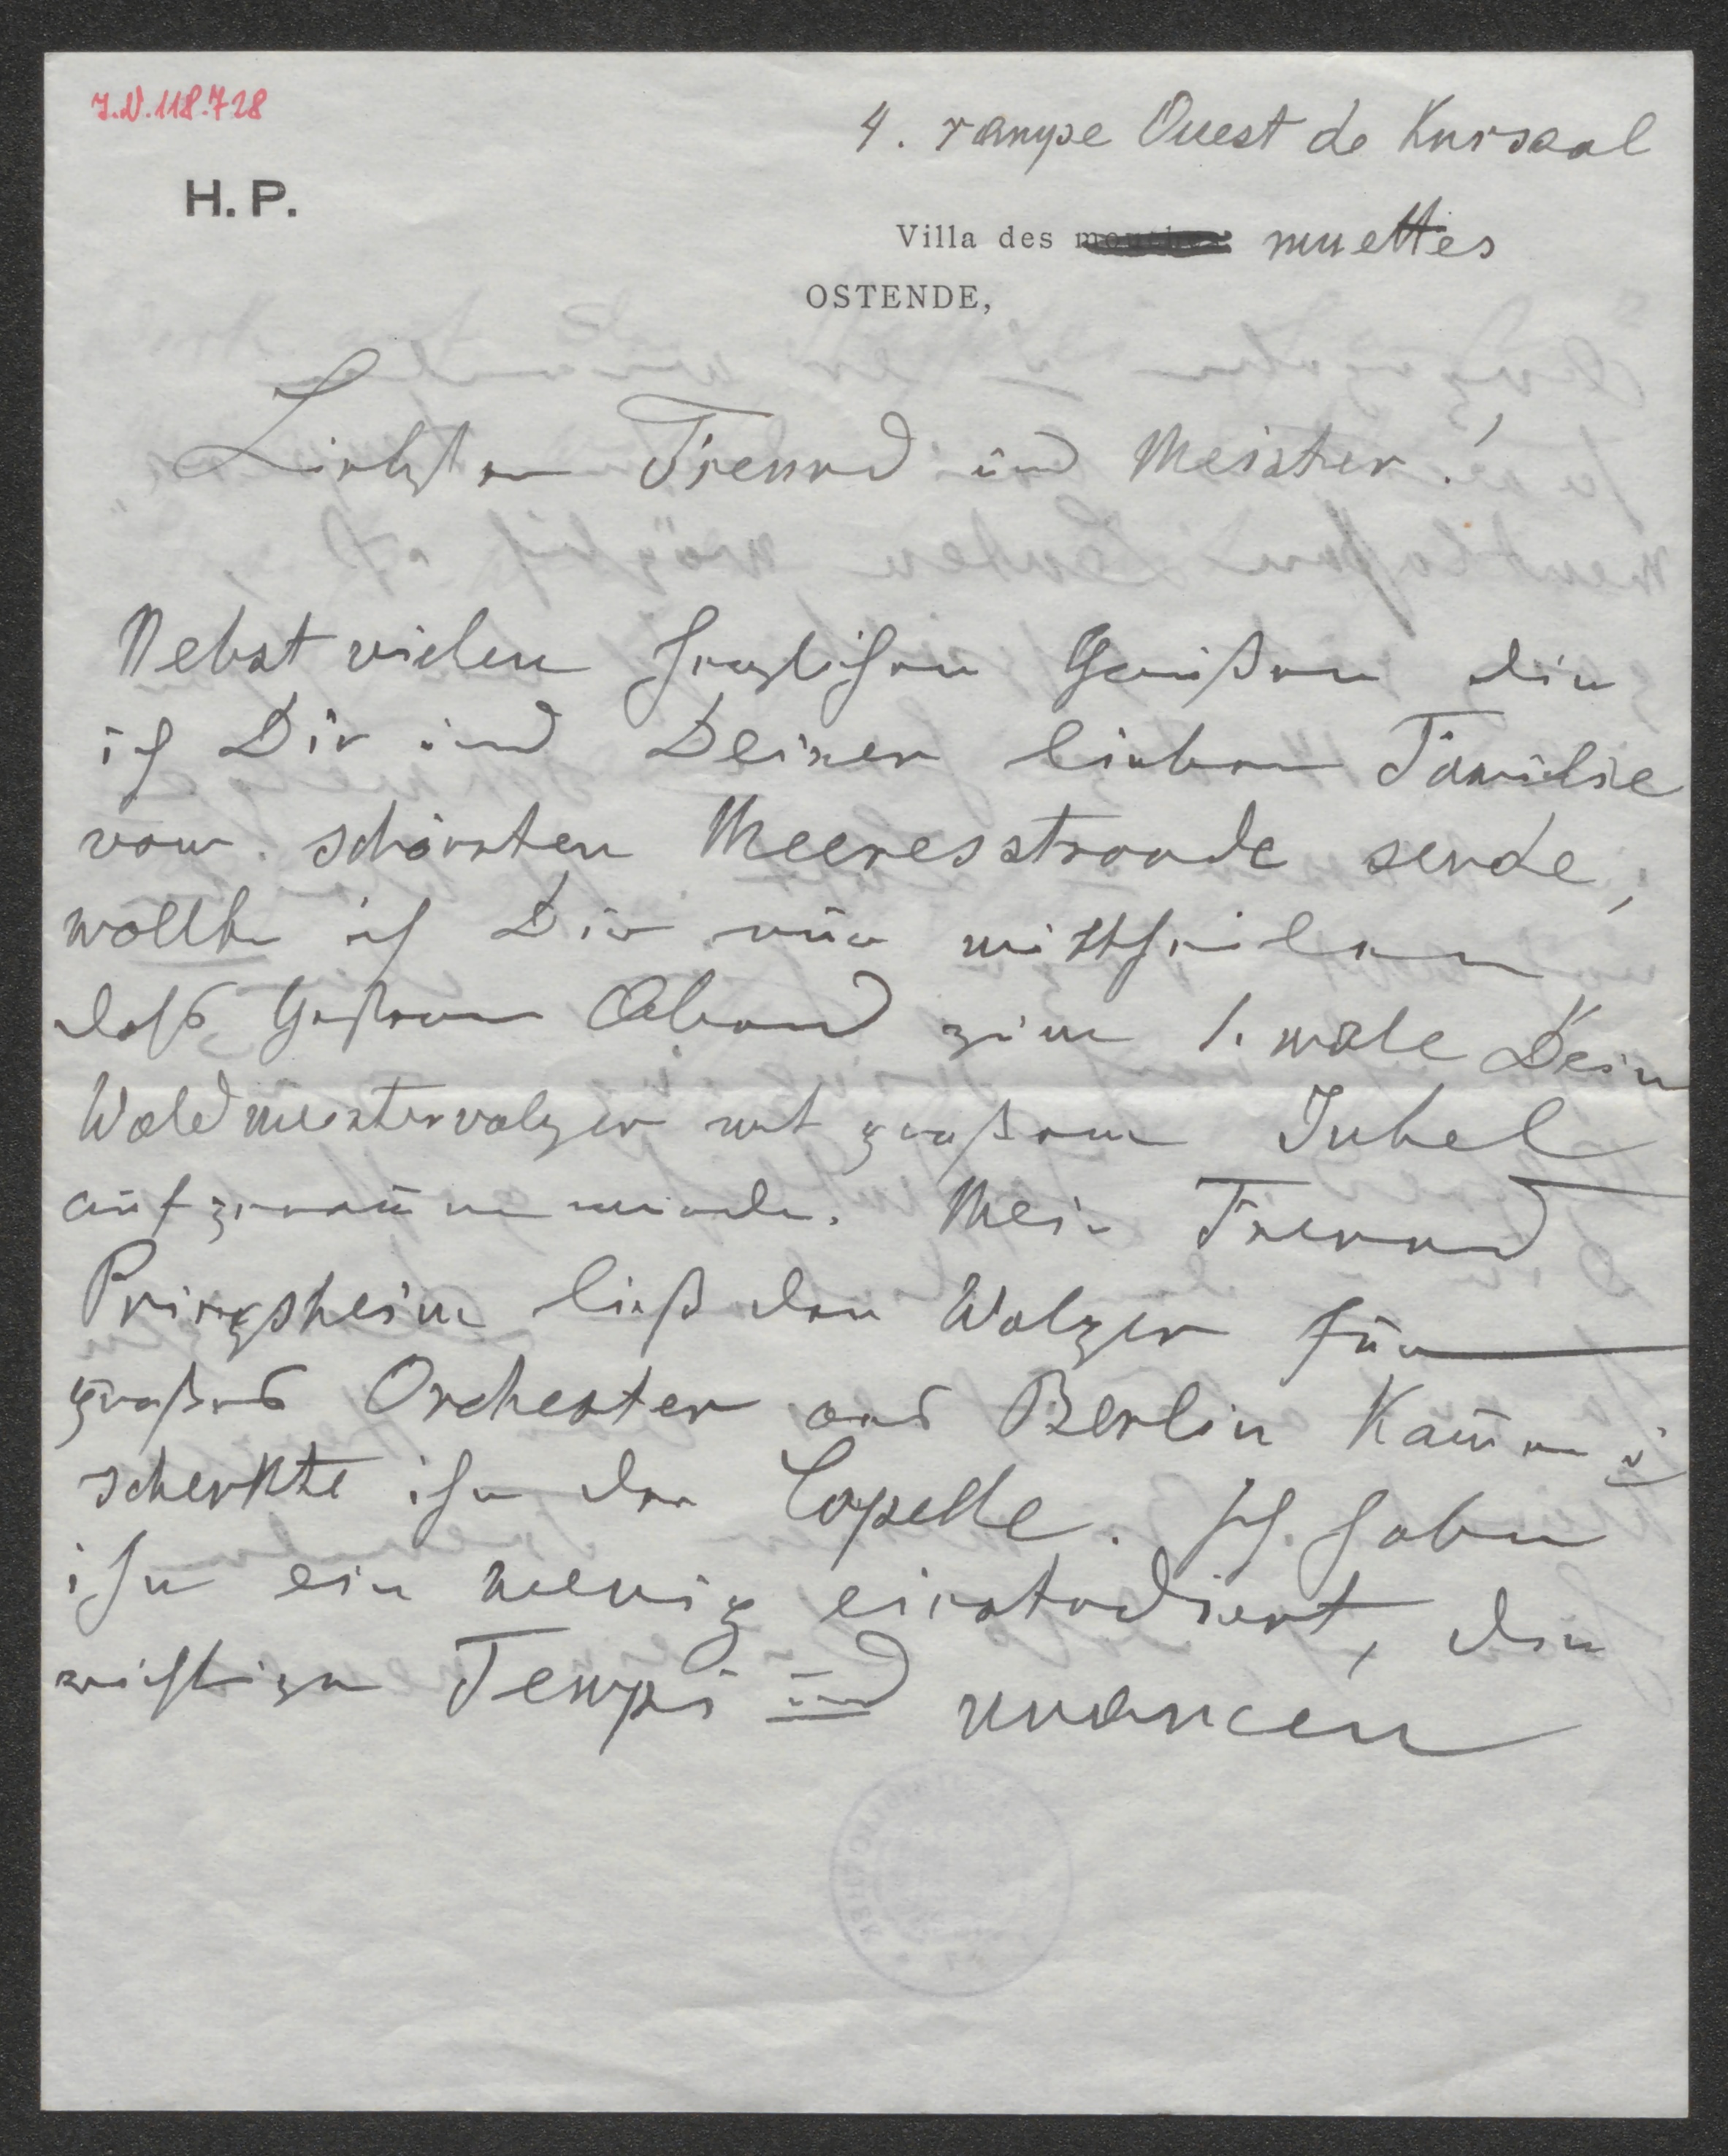 J.N. 118.728
4. rampe Ouest de Kursaal
H. P.
Villa des muettes
OSTENDE,
Liebster Freund und Meister!
Nebst vielen herzlichen Grüßen die
ich Dir und Deiner lieben Familie
vom schönsten Meeresstrande sende,
wollte ich Dir nur mittheilen
dass Gestern Abend zum 1. male Dein
Waldmeisterwalzer mit großem Jubel
aufgenom̄en wurde. Mein Freund
Pringsheim ließ den Walzer für
großes Orchester aus Berlin kom̄en u
schenkte ihn der Capelle. Ich habe
ihn ein wenig einstudiert, die
richtigen Tempi und nuancen